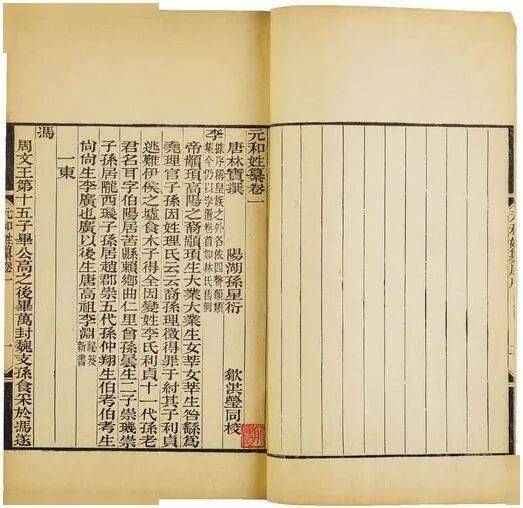 元和姓纂卷一
唐林寶撰　陽湖孫星衍　歙洪瑩同校
李
帝顓頊高陽之裔顓頊生大業大業生女莘女莘生咎繇爲
堯理官子孫因姓理氏云云裔孫理徵得罪于紂其子利貞
逃難伊侯之墟食木子得全因變姓李氏利貞十一代孫老
君名耳字伯陽居苦縣賴鄉曲仁里曾孫曇生二子崇璣崇
子孫居隴西璣子孫居趙郡崇五代孫仲翔生伯考伯考生
尚尚生李廣也廣以後生唐高祖李淵
祕笈
新書
一東
馮
周文王第十五子畢公高之後畢萬封魏支孫食采於馮遂
元和姓纂卷一
一